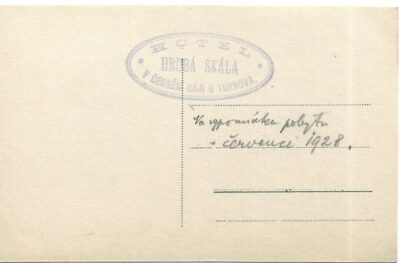 HOTEL
HRUBÁ SKÁLA
V ČESKÉM RÁJI U TURNOVA.
Na vzpomínku pobytu
v červenci 1928.